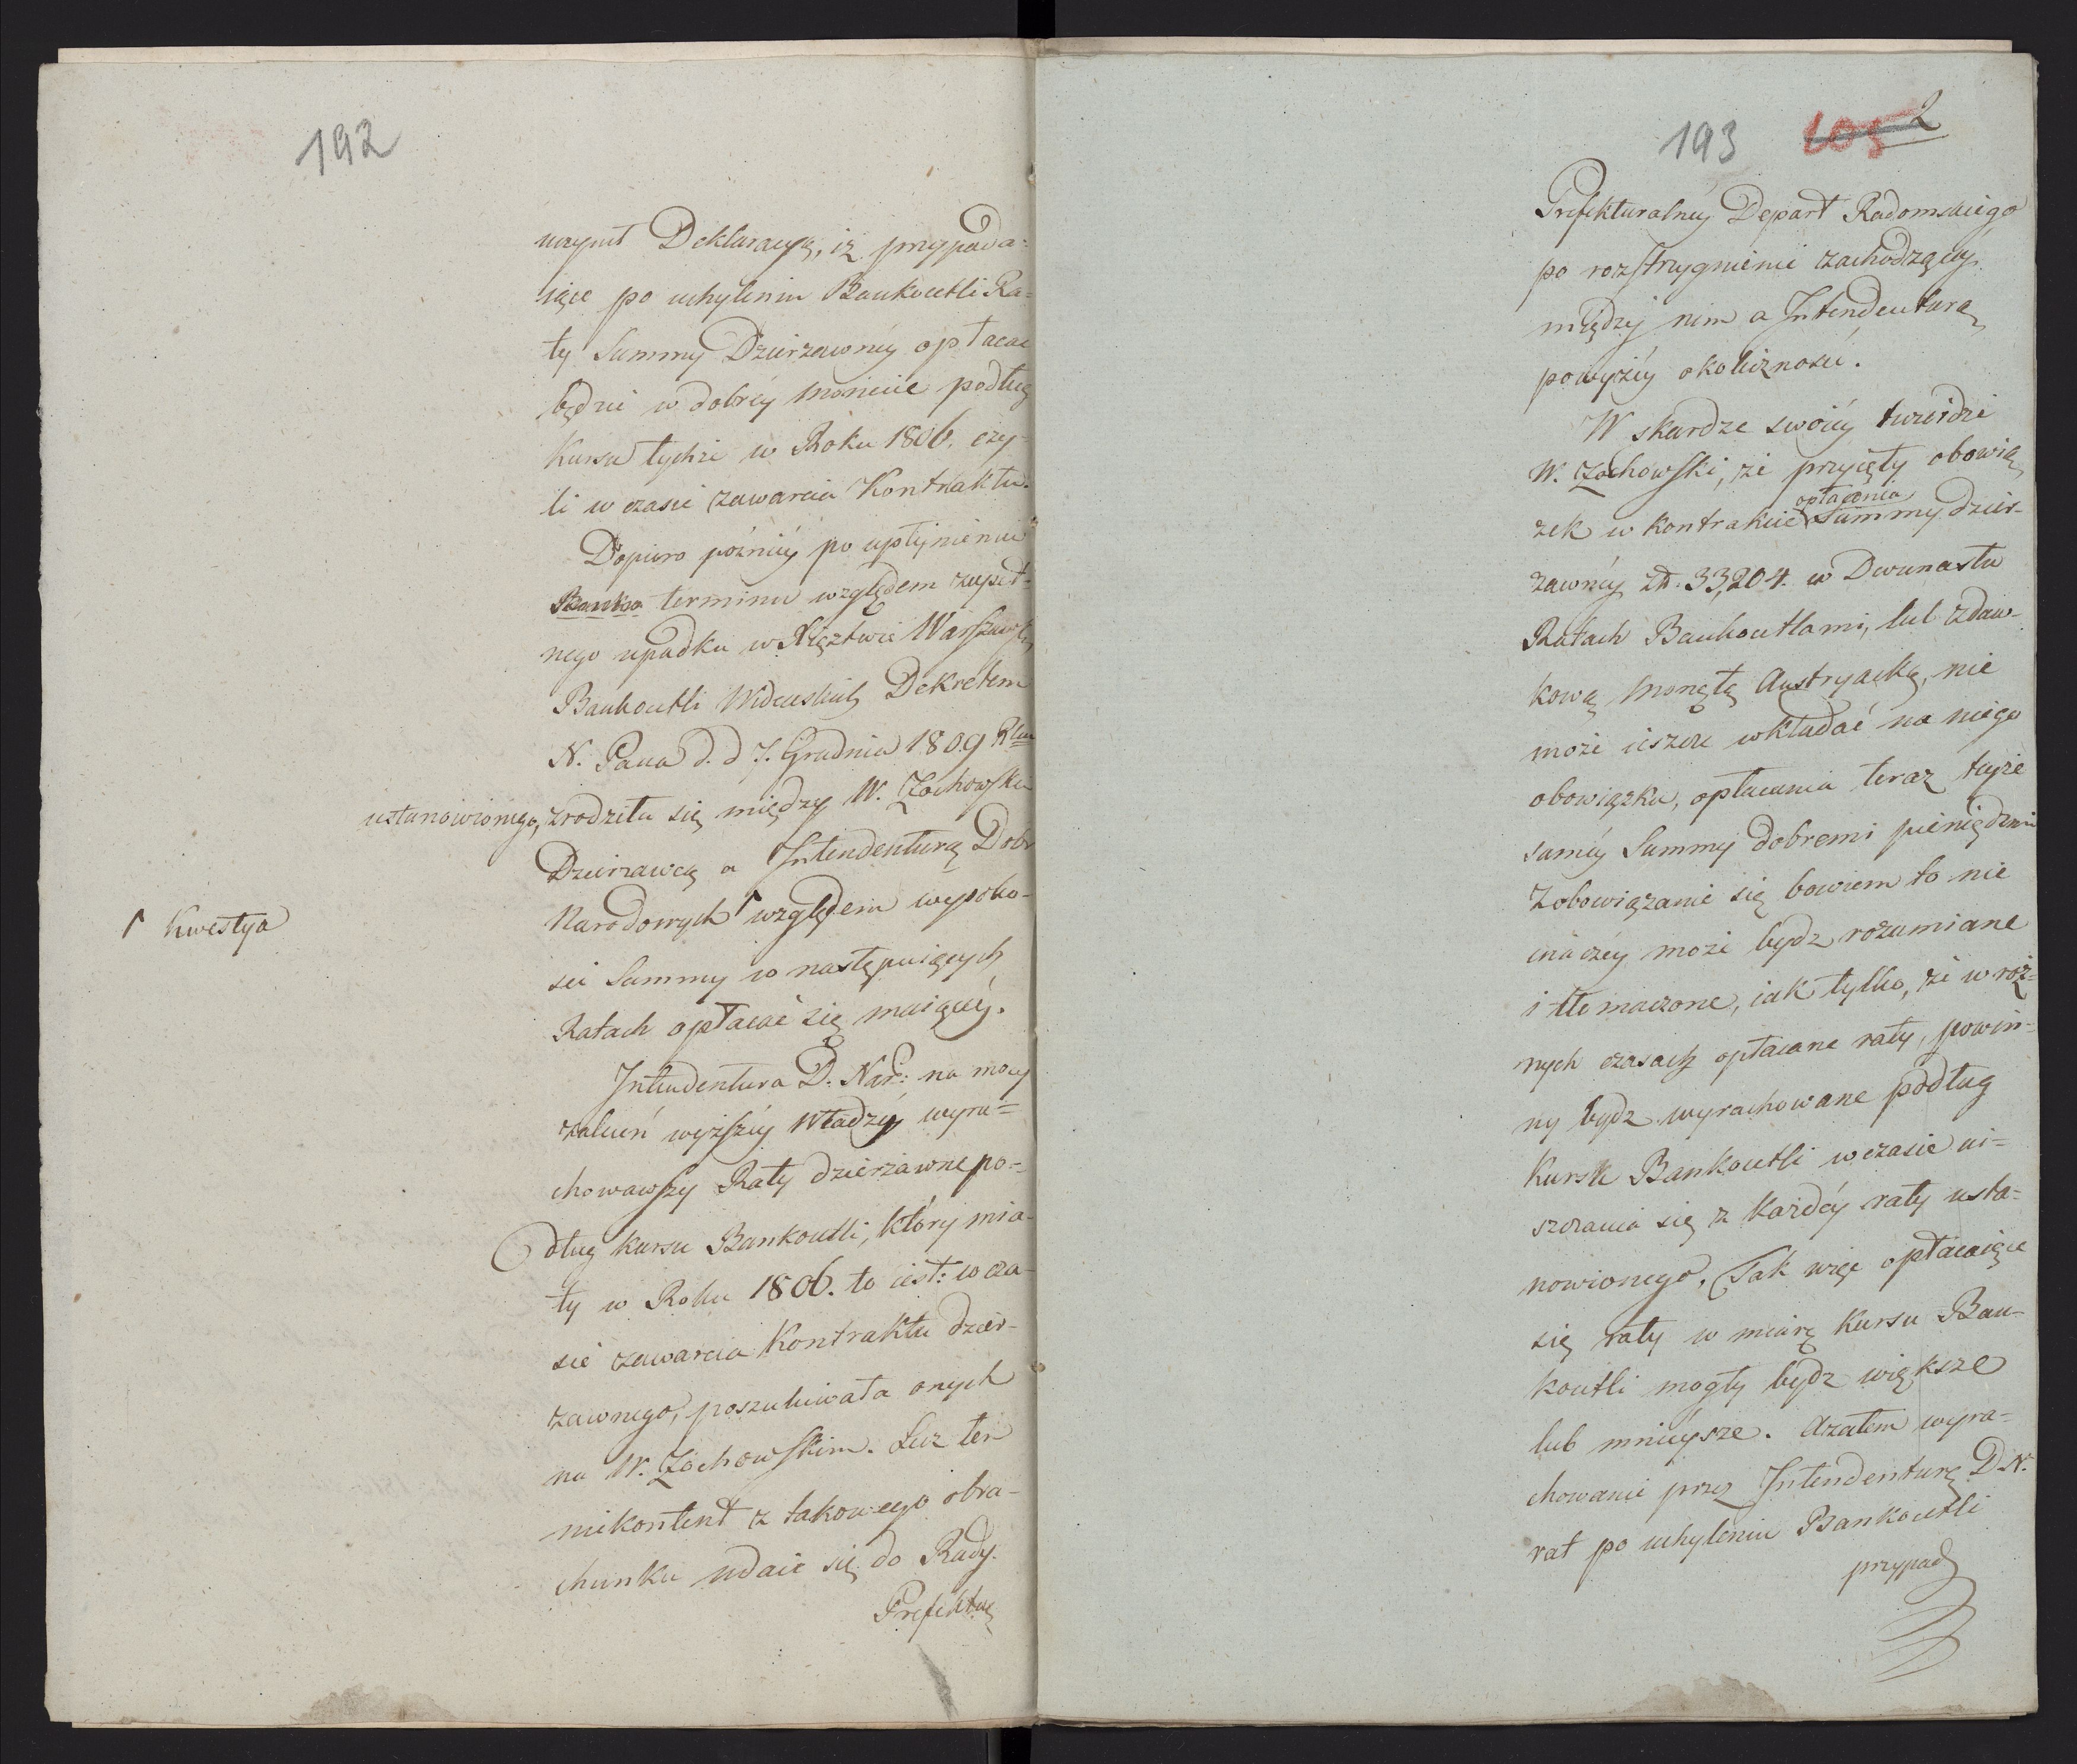 192
uczynił Deklaracyą, iż przypada=
iące po uchyleniu Bankocetli Ra=
ty Summy Dzierzawnéy opłacać
będzie w dobréy monecie podług
Kursu tychże w Roku 1806. czy-
li w czasie zawarcia Kontraktu.
Dopiero poźniéy po upłynieniu
terminu względem zupeł-
nego upadku w Xięztwie Warszaws:
Bankocetli Widenskich Dekretem
N. Pana d. d 7. Grudnia 1809 R
ustanowionego, zrodziła się między W. Zochowskim
Dzierzawcą a Intendenturą Dobr
Narodowych ↑ względem wysoko-
ści Summy w następuiących
Ratach opłacać się maiącéy.
↑ Kwestya
Intendentura D. Nar: na mocy
zaleceń wyższéy Władzy wyra=
chowawszy Raty dzierzawne po=
dług kursu Bankocetli, który mia-
ły w Roku 1806. to iest: w cza-
sie zawarcia Kontraktu dzier-
zawnego, poszukiwała onych
na W. Zochowskim. Lecz ten
niekontent z takowego obra-
chunku udaie się do Rady
Prefektur
193 105 2
Prefekturalnéy Depart Radomskiego
po rozstrzygnienie zachodzącéy
między nim a Intendenturą
powyższéy okoliczności.
W skardze swoiéy twierdzi
W. Zochowski, że przyięty obowią
zek w kontrakcie opłacenia Summy dzier-
zawnéy zł. 33,204. w Dwunastu
Ratach Bankocetlami, lub zdaw-
kową Monetą Austryacką, nie
może ieszcze wkładać na niego
obowiązku, opłacania teraz teyże
saméy Summy dobremi pieniędzmi
Zobowiązanie się bowiem to nie
inaczéy może bydz rozumiane
i tłemaczone, iak tylko, że w róż=
nych czasach opłacane raty, powin=
ny bydz wyrachowane podług
Kursu Bankocetli w czasie ui=
szczania się z każdéy raty usta=
nowionego. Tak więc opłacaiące
się raty w miarę Kursu Ban-
kocetli mogły bydz większe
lub mnieysze. A zatem wyra=
chowanie przez Intendenturę D. N.
rat po uchyleniu Bankocetli
przypad